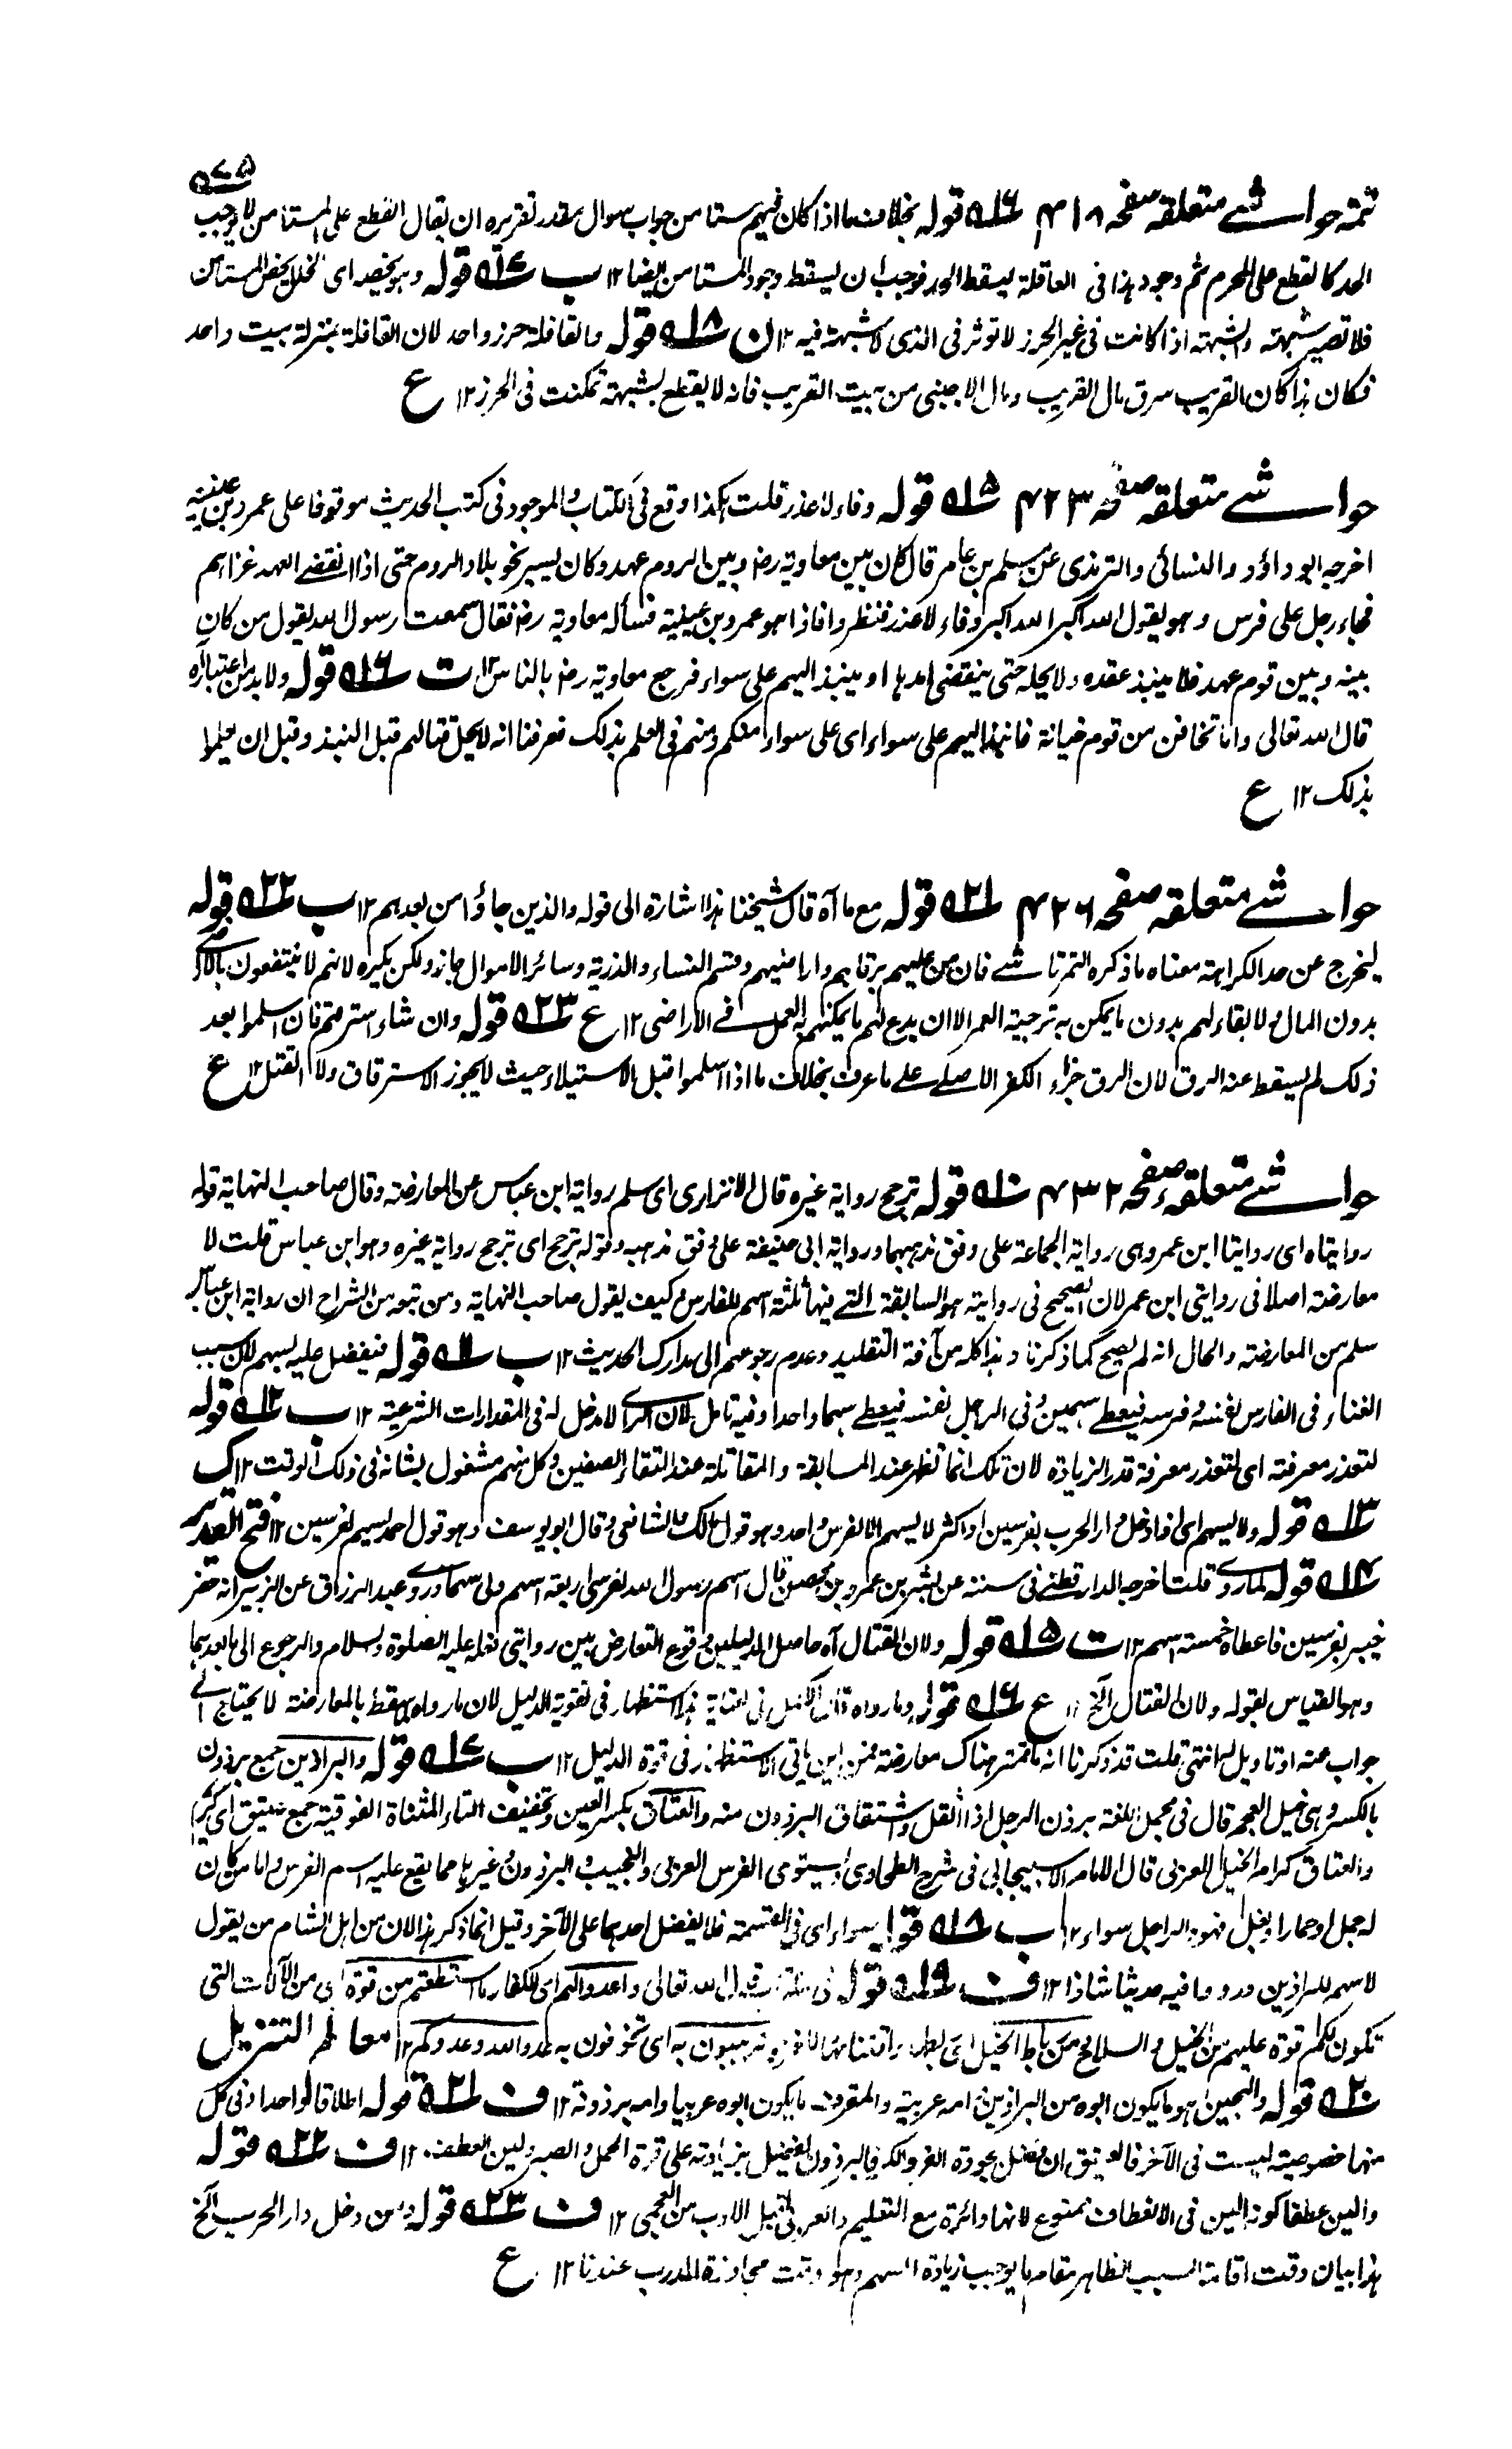 ۵۷۵
تتمه حواشے متعلقه صفحه ۴۱۸ ۱۶ قوله بخلاف ما اذا كان فيهم مستامن جواب سوال مقدر تقريره ان يقال القطع على المستامن لا يوجب
الحد كالقطع على المحرم ثم وجود هذا فى القافلة يسقط الحد فوجب ان يسقط وجود المستامن ايضا ١٢ ب ۱۷ قوله وهو يخصه اى الخلل يخص المستامن
فلا تصير شبهته والشبهته اذا كانت فى غير الحرز لا توثر فى الذى لا شبهة فيه ١٢ ن ۱۸ قوله والقافلة حرز واحد لان القافلة بمنزلة بيت واحد
فكان هذا كان القريب سرق مال القريب ومال الاجنبى من بيت القريب فانه لا يقطع لشبهته تمكنت فى الحرز ١٢ ع
حواشے متعلقه صفحه ۴۲۳ ۱۵ قوله وفاء لا غدر قلت هكذا وقع فى الكتاب والموجود فى كتب الحديث موقوفا على عمرو بن عيينه
اخرجه ابو داؤد والنسائى والترمذى عن سليم بن عامر قال كان بين معاوية رض وبين الروم عهد وكان يسير نحو بلاد الروم حتى اذا انقضے العهد غزاهم
فجاء رجل على فرس وهو يقول الله اكبر الله اكبر وفاء لا غدر فنظروا فاذا هو عمرو بن عيينة فسأله معاوية رض فقال سمعت رسول الله يقول من كان
بينه وبين قوم عهد فلا ينبذ عقده ولا يحله حتى ينقضى امدها او ينبذ اليهم على سواء فرجع معاوية رض بالناس ١٢ ت ۱۶ قوله ولا بد من اعتباره
قال الله تعالى واما تخافن من قوم خيانة فانبذ اليهم على سواء اى على سواء منكم ومنهم فى العلم بذلك فعرفنا انه لا يحل قتالهم قبل النبذ وقبل ان يعلموا
بذلك ١٢ ع
حواشے متعلقه صفحه ۴۲۶ ۲۱ قوله مع ما آه قال شيخنا هذا اشارة الى قوله والذين جاؤا من بعدهم ١٢ ب ۲۲ قوله
ليخرج عن حد الكراهة معناه ما ذكره التمرتاشے فان من عليهم برقابهم واراضيهم وقسم النساء والذرية وسائر الاموال جاز ولكن يكره لانهم لا ينتفعون بالاراضے
بدون المال ولا بقاء لهم بدون ما يمكن به ترجية العمر الا ان يدع لهم ما يمكنهم به العمل فے الاراضى ١٢ ع ۲۳ قوله وان شاء استرقهم فان اسلموا بعد
ذلك لم يسقط عنه الرق لان الرق جزاء الكفر الاصلے علے ما عرف بخلاف ما اذا اسلموا قبل الاستيلاء حيث لا يجوز الاسترقاق ولا القتل ١٢ ع
حواشے متعلقه صفحه ۴۳۲ ۱۰ قوله ترجح رواية غيره قال الاترازى اى سلم رواية ابن عباس عن المعارضة وقال صاحب النهاية قوله
روايتاه اى روايتا ابن عمر وهى رواية الجماعة على وفق مذهبهما ورواية ابى حنيفة على وفق مذهبه وقوله ترجح اى ترجح رواية غيره وهو ابن عباس قلت لا
معارضته اصلا فى روايتى ابن عمر لان الصحيح فى روايته هو السابقة التے فيها ثلثة اسهم للفارس وكيف يقول صاحب النهاية ومن تبعه من الشراح ان رواية ابن عباس
سلم من المعارضته والحال انه لم يصح كما ذكرنا وهذا كله من آفة التقليد وعدم رجوعهم الى مدارك الحديث ١٢ ب ۱۱ قوله فيفضل عليه بسهم لان سبب
الغناء فى الفارس نفسه وفرسه فيعطے سهمين وفى الراجل نفسه فيعطے سهما واحدا وفيه تامل لان الراى لا مدخل له فى المقدارات الشرعية ١٢ ب ۱۲ قوله
لتعذر معرفته اى لتعذر معرفة قدر الزيادة لان تلك انما تظهر عند المسابقة والمقاتلة عند التقاء الصفين وكل منهم مشغول بشانه فى ذلك الوقت ١٢ ك
۱۳ قوله ولا يسهم اى اذا دخل دار الحرب بفرسين او اكثر لا يسهم الا لفرس واحد وهو قول مالك والشافعى وقال ابو يوسف وهو قول احمد يسهم لفرسين ١٢ فتح القدير
۱۴ قوله لما روے قلت اخرجه الدارقطنے فى سننه عن بشير بن عمرو بن محصن قال اسهم رسول الله لفرسى اربعة اسهم ولى سهما وروے عبد الرزاق عن الزبير انه حضر
خيبر بفرسين فاعطاه خمسة اسهم ١٢ ت ۱۵ قوله ولان القتال آه حاصل الدليلين وقوع التعارض بين روايتى فعله عليه الصلوة والسلام والرجوع الى ما بعدهما
وهو القياس بقوله ولان القتال الخ ١٢ ع ۱۶ قوله وما رواه قال الاكمل فى العناية هذا استظهار فى تقوية الدليل لان ما رواه يسقط بالمعارضة لا يحتاج الے
جواب عنه او تاويل لها انتهى قلت قد ذكرنا انه ما ثمة هناك معارضة فمن اين ياتى الاستظهار فى قوة الدليل ١٢ ب ۱۷ قوله والبراذين جمع برذون
بالكسر وهى خيل العجم قال فى مجمل اللغة برذن الرجل اذا اثقل واشتقاق البرذون منه والعتاق بكسر العين وتخفيف التاء المثناة الفوقية جمع عتيق اى كريم
والعتاق كرام الخيل العربى قال الامام الاسبيجابى فى شرح الطحاوى ويستوى الفرس العربى والنجيب والبرذون وغيرها مما يقع عليه اسم الفرس واما من كان
له جمل او حمار او بغل فهو والراجل سواء ١٢ ب ۱۸ قوله سواء اى فى القسمة فلا يفضل احدهما على الآخر وقيل انما ذكر هذا لان من اهل الشام من يقول
لا سهم للبراذين ورووا فيه حديثا شاذا ١٢ ف ۱۹ قوله قال الله تعالى واعدوا لهم اى للكفار ما استطعتم من قوة اى من الآلات التى
تكون لكم قوة عليهم من الخيل والسلاح ومن رباط الخيل ترهبون به اى تخوفون به عدو الله وعدوكم ١٢ معالم التنزيل
۲۰ قوله والهجين هو ما يكون ابوه من البراذين امه عربية والمقرف ما يكون ابوه عربيا وامه برذونة ١٢ ف ۲۱ قوله اطلاقا لواحد اذ فى كل
منها خصوصية ليست فى الآخر فالعتيق ان فضل بجودة الفر والكر فالبرذون يفضل بزيادته على قوة الحمل والصبر ولين العطف ١٢ ف ۲۲ قوله
والين عطفا كونه الين فى الانعطاف ممنوع لانها دائرة مع التعليم والعربى اقبل للادب من العجمى ١٢ ف ۲۳ قوله ومن دخل دار الحرب الخ
هذا بيان وقت اقامة السبب الظاهر مقام ما يوجب زيادة السهم وهو وقت مجاوزة الدرب عندنا ١٢ ع